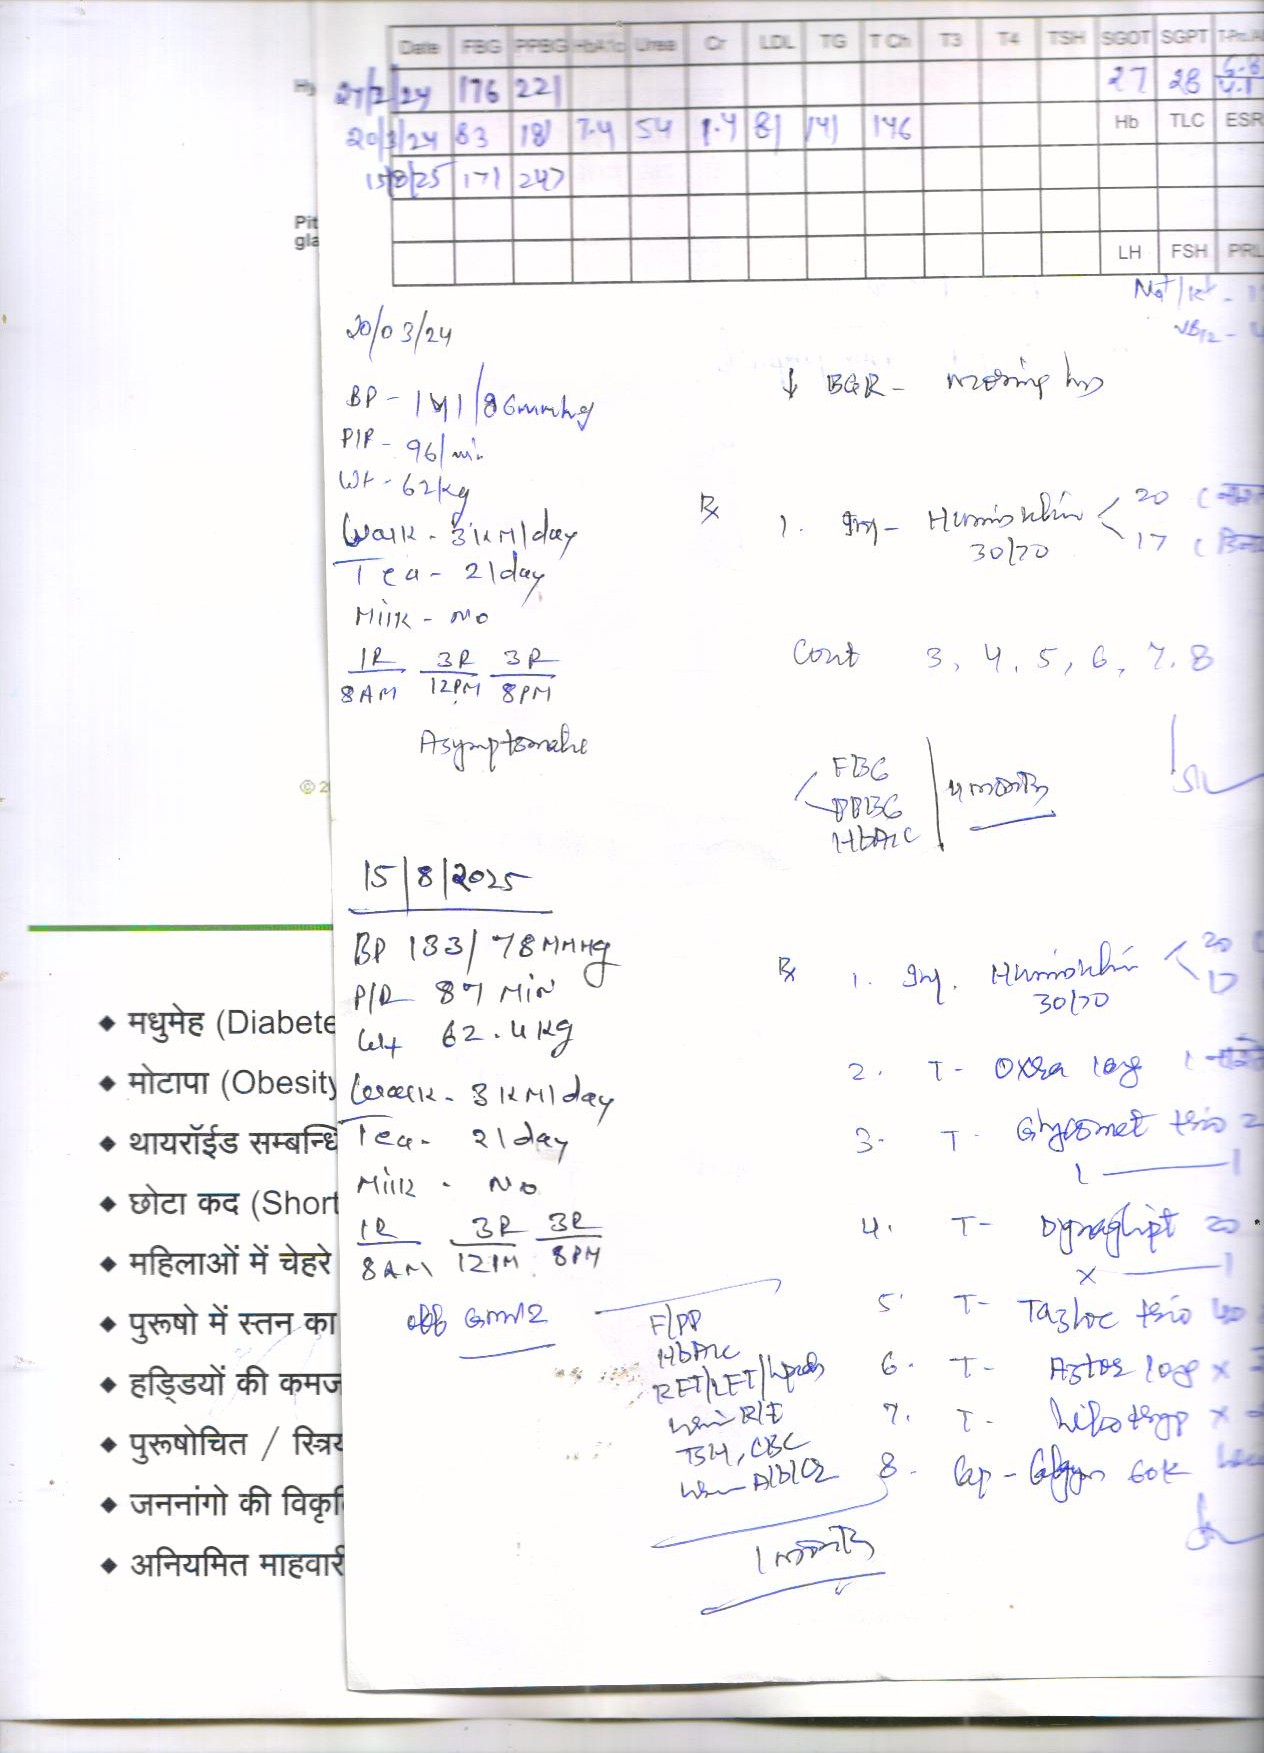 Date FBG PPBG HbA1c Urea Cr LDL TG T Ch T3 T4 TSH SGOT SGPT
27/2/24 176 221 27 28
20/3/24 83 181 7.4 54 1.4 81 141 146 Hb TLC ESR
15/8/25 171 247
Pit
gla
LH FSH PRL
Na+/K+ -
VB12 -
20/03/24
↓ BGR -
BP - 141/86mmhg
P/R - 96/min
Wt - 62kg
Rx 1. Inj - 30/70 20
17
Walk - 3KM/day
Tea - 2/day
Milk - No
1R 3R 3R
8AM 12PM 8PM
Cont 3, 4, 5, 6, 7, 8
Asymptomatic
FBG
PPBG
HbA1c
4 months
© 2
15/8/2025
BP 133/78MMHg
P/R 87 MIN
Wt 62.4kg
Walk - 3KM/day
Tea - 2/day
Milk - No
1R 3R 3R
8AM 12PM 8PM
off GM2
F/PP
HbA1c
RFT/LFT/Lipids
R/E
TSH, CBC
1 month
Rx 1. Inj. 30/70 20
17
2. T- Oxra
3. T- Glycomet trio 2
1 — 1
4. T- Dynaglipt 20
x — 1
5. T- Tazloc trio 40
6. T- Aztor x
7. T- x
8. Cap - 60K
◆ मधुमेह (Diabete
◆ मोटापा (Obesity
◆ थायरॉईड सम्बन्धि
◆ छोटा कद (Short
◆ महिलाओं में चेहरे
◆ पुरूषो में स्तन का
◆ हड्डियों की कमज
◆ पुरूषोचित / स्त्रिय
◆ जननांगो की विकृति
◆ अनियमित माहवारी